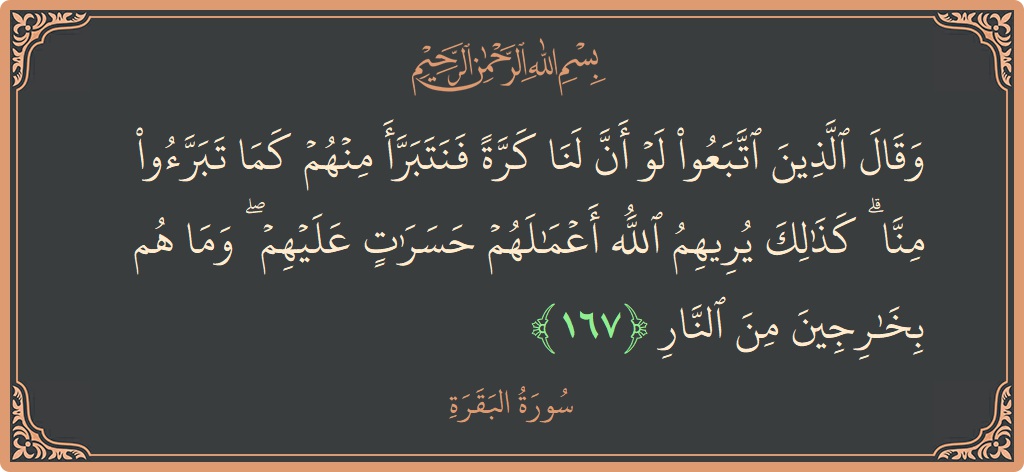 بِسْمِ اللَّهِ الرَّحْمَٰنِ الرَّحِيمِ
وَقَالَ ٱلَّذِينَ ٱتَّبَعُوا۟ لَوْ أَنَّ لَنَا كَرَّةً فَنَتَبَرَّأَ مِنْهُمْ كَمَا تَبَرَّءُوا۟
مِنَّا ۗ كَذَٰلِكَ يُرِيهِمُ ٱللَّهُ أَعْمَـٰلَهُمْ حَسَرَٰتٍ عَلَيْهِمْ ۖ وَمَا هُم
بِخَـٰرِجِينَ مِنَ ٱلنَّارِ ﴿١٦٧﴾
سُورَةُ البَقَرَةِ